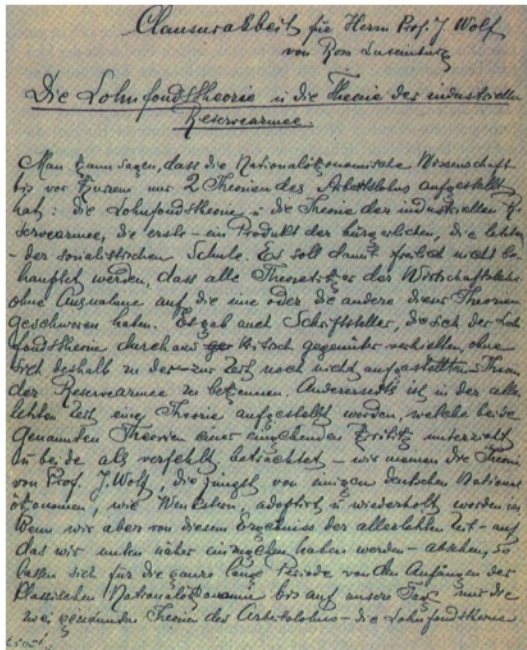 Clausurarbeit für Herrn Prof. J Wolf
von Rosa Luxemburg
Die Lohnfondstheorie u die Theorie der industriellen
Reservearmee.
Man kann sagen, dass die Nationalökonomische Wissenschaft
bis vor Kurzem nur 2 Theorien des Arbeitslohns aufgestellt
hat: die Lohnfondstheorie u die Theorie der industriellen Re
servearmee, die erste - ein Produkt der bürgerlichen, die letzte
- der sozialistischen Schule. Es soll damit freilich nicht be
hauptet werden, dass alle Theoretiker der Wirtschaftslehre
ohne Ausnahme auf die eine oder die andere dieser Theorien
geschworen haben. Es gab auch Schriftsteller, die sich der Lohn
fondstheorie durchaus kritisch gegenüber verhielten, ohne
sich deshalb zu der - zur Zeit noch nicht aufgestellten - Theorie
der Reservearmee zu bekennen. Andererseits ist in der aller
letzten Zeit eine Theorie aufgestellt worden, welche beide
genannten Theorien einer eingehenden Kritik unterzieht
u beide als verfehlt betrachtet - wir meinen die Theorie
von Prof. J. Wolf, die jüngst von einigen deutschen National
ökonomen, wie adoptirt u wiederholt worden ist.
Wenn wir aber von diesem Ergebniss der allerletzten Zeit - auf
das wir unten näher einzugehen haben werden - absehen, so
lassen sich für die ganze lange Periode von den Anfängen der
klassischen Nationalökonomie bis auf unsere Tage nur die
zwei Theorien des Arbeitslohns - die Lohnfondstheorie